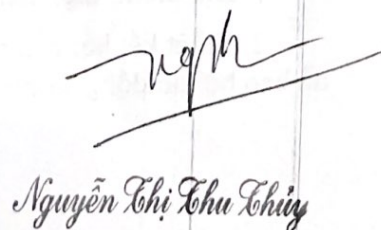 Nguyễn Thị Thu Thủy